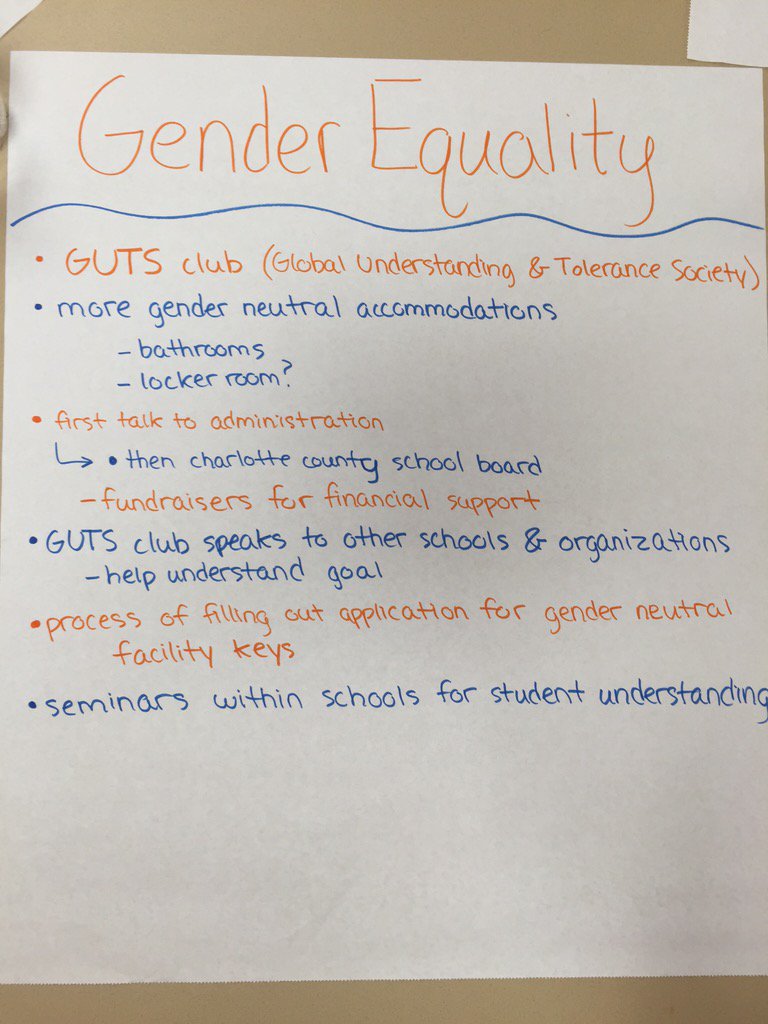 Gender Equality
• GUTS club (Global Understanding & Tolerance Society)
• more gender neutral accommodations
- bathrooms
- locker room?
• first talk to administration
↳ • then charlotte county school board
- fundraisers for financial support
• GUTS club speaks to other schools & organizations
- help understand goal
• process of filling out application for gender neutral
facility keys
• seminars within schools for student understanding